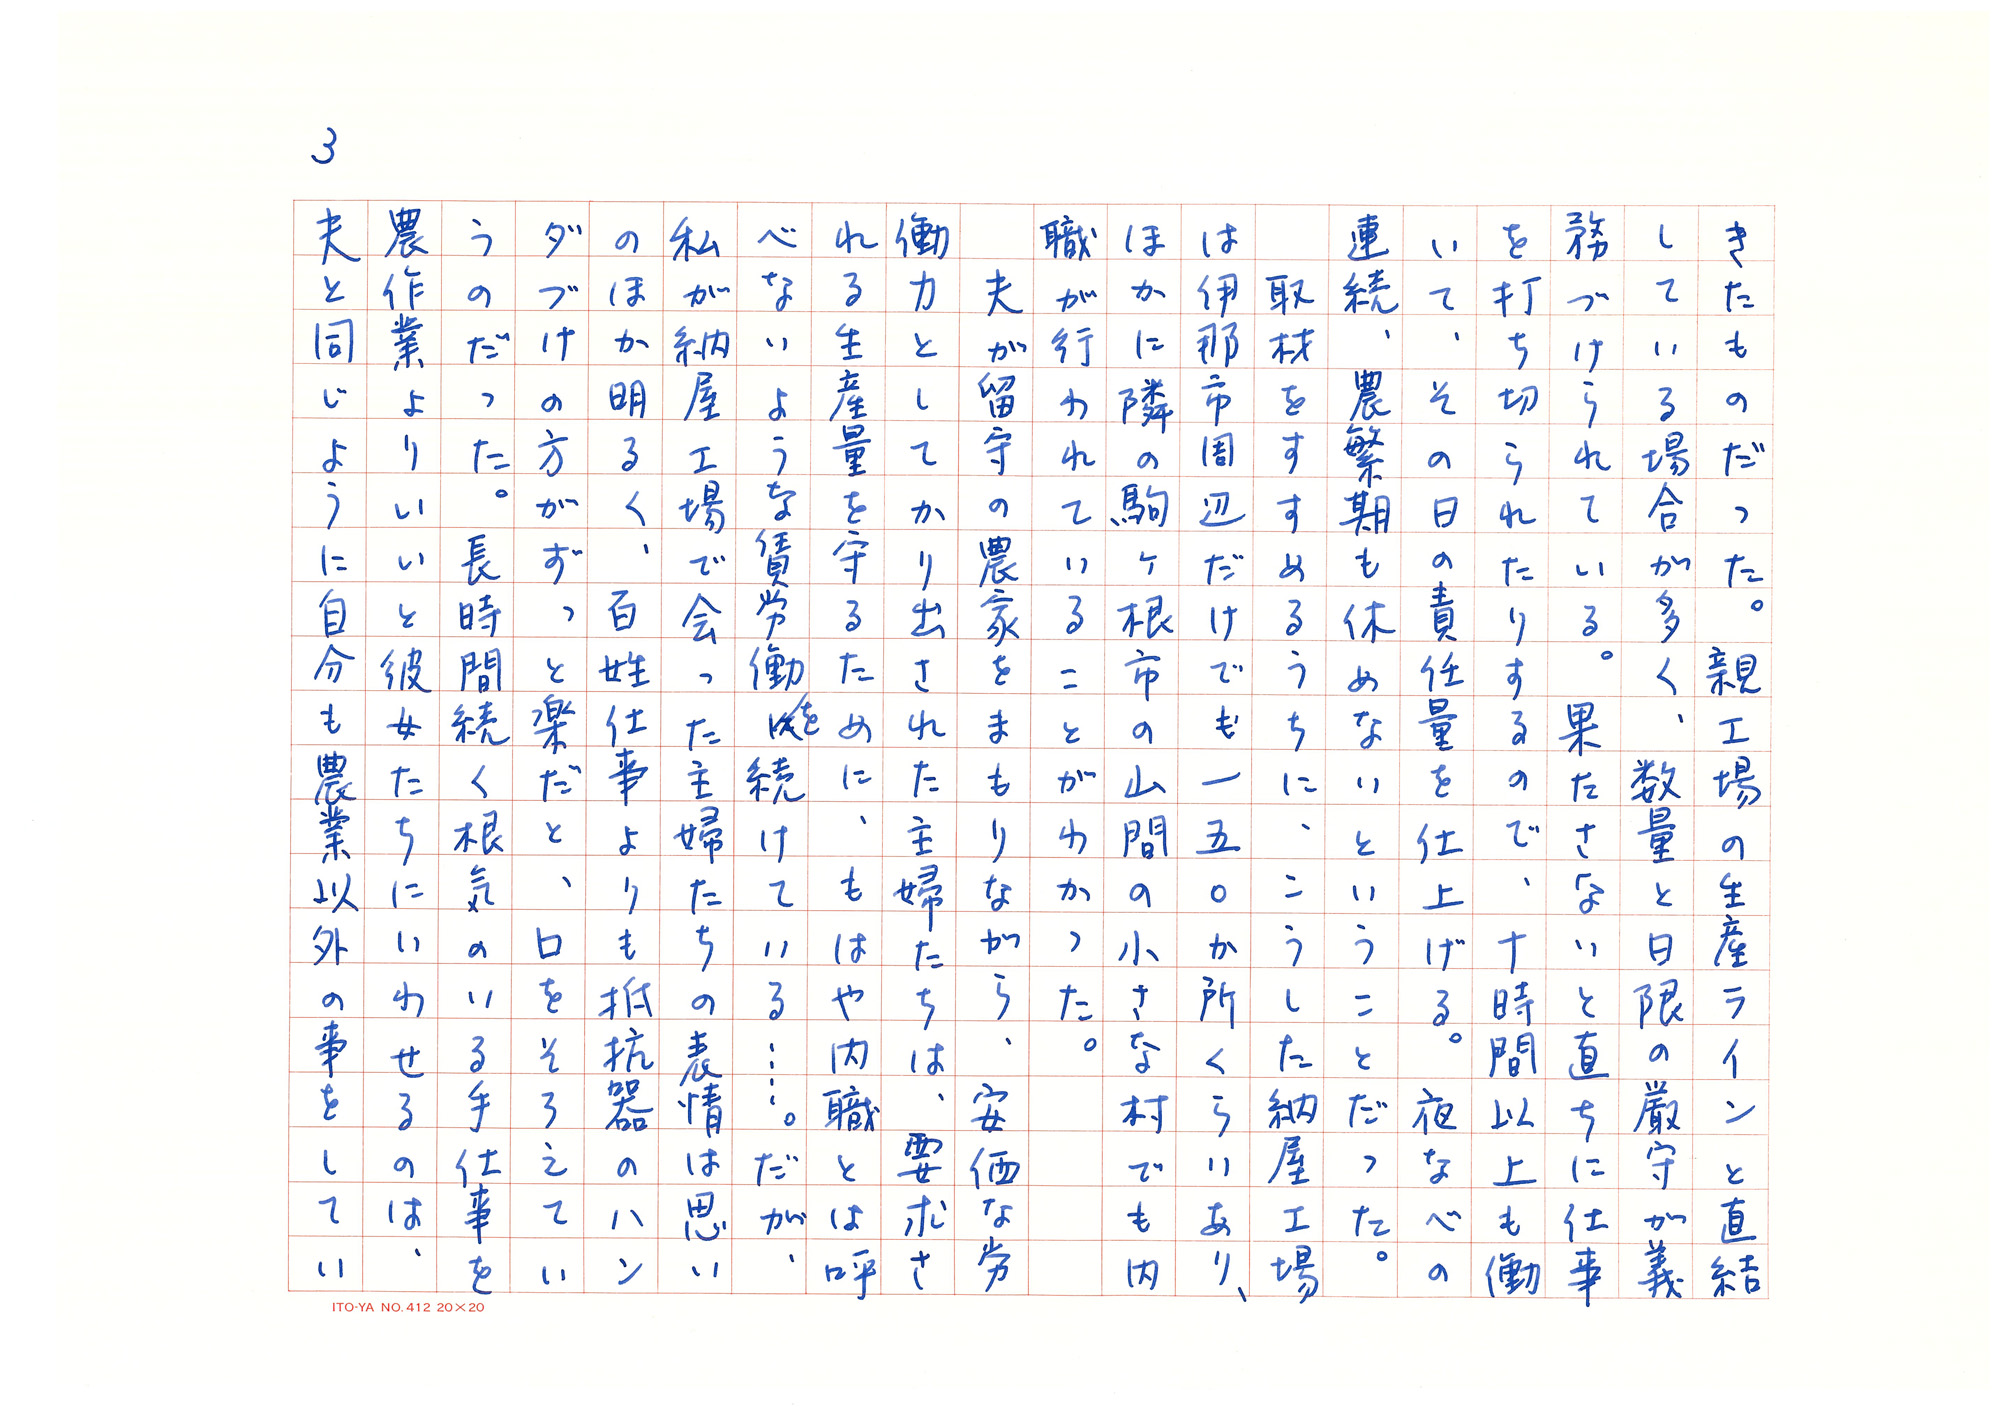 3
きたものだった。親工場の生産ラインと直結
している場合が多く、数量と日限の厳守が義
務づけられている。果たさないと直ちに仕事
を打ち切られたりするので、十時間以上も働
いて、その日の責任量を仕上げる。夜なべの
連続、農繁期も休めないということだった。
取材をすすめるうちに、こうした納屋工場
は伊那市周辺だけでも一五〇か所くらいあり、
ほかに隣の駒ヶ根市の山間の小さな村でも内
職が行われていることがわかった。
夫が留守の農家をまもりながら、安価な労
働力としてかり出された主婦たちは、要求さ
れる生産量を守るために、もはや内職とは呼
べないような賃労働を続けている……。だが、
私が納屋工場で会った主婦たちの表情は思い
のほか明るく、百姓仕事よりも抵抗器のハン
ダづけの方がずっと楽だと、口をそろえてい
うのだった。長時間続く根気のいる手仕事を
農作業よりいいと彼女たちにいわせるのは、
夫と同じように自分も農業以外の事をしてい
ITO-YA NO.412 20×20